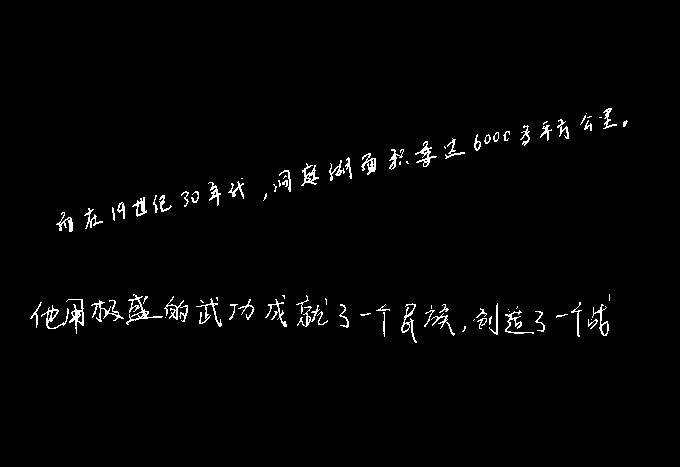 而在19世纪30年代,洞庭湖面积要达6000多平方公里。
他用极盛的武功成就了一个民族,创造了一个战